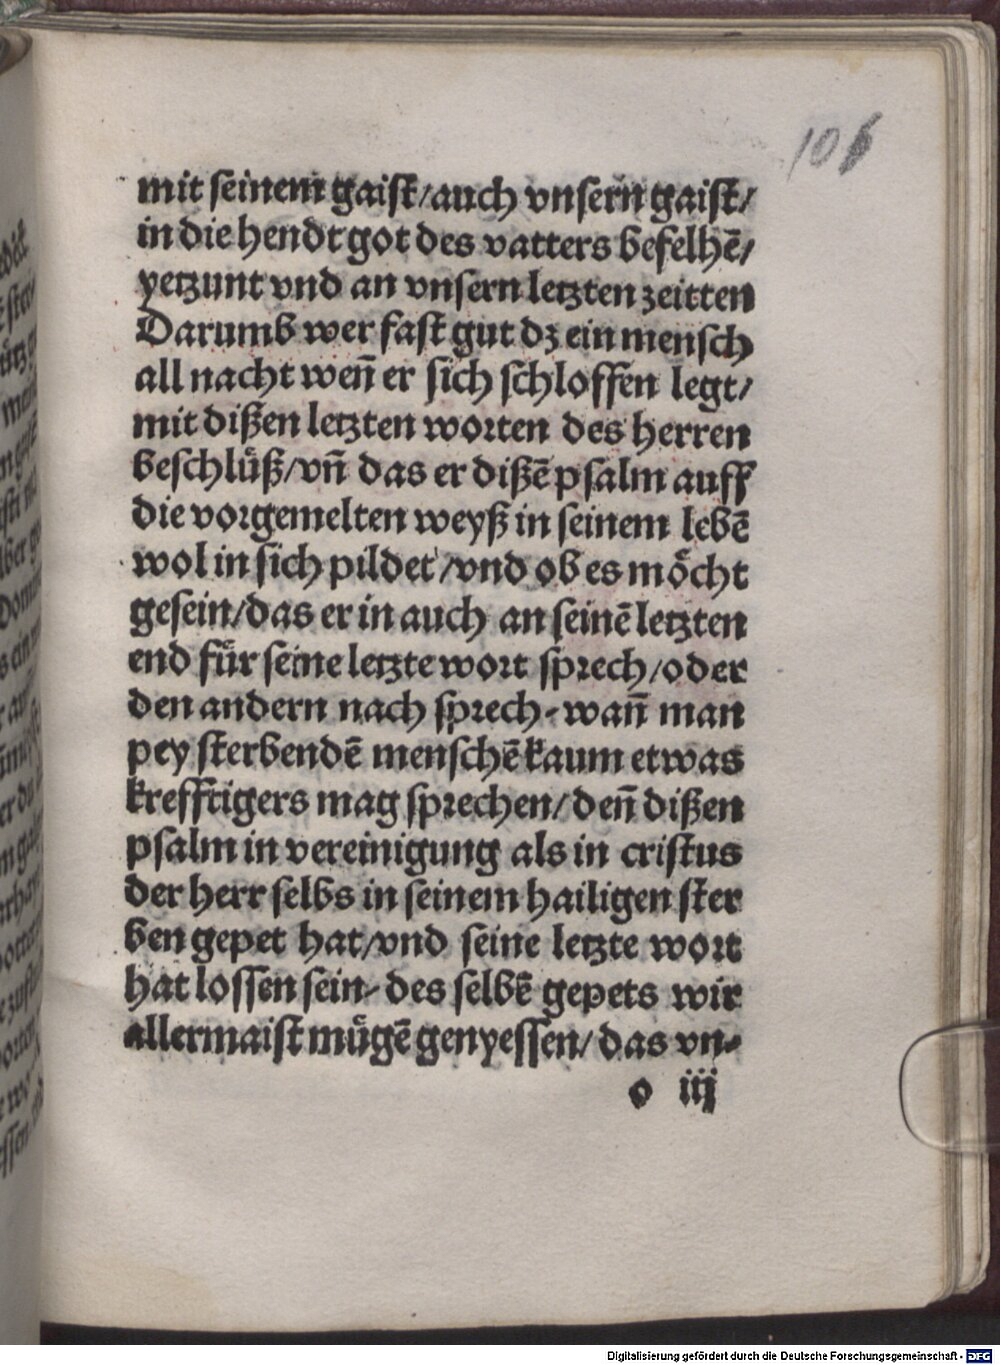 106
mit seinem gaist/auch vnsern gaist/
in die hendt got des vatters befelhē/
yetzunt vnd an vnsern letzten zeitten
Darumb wer fast gut dz ein mensch
all nacht wen̄ er sich schloffen legt/
mit dißen letzten worten des herren
beschlüß/vn̄ das er dißē psalm auff
die vorgemelten weyß in seinem lebē
wol in sich pildet/vnd ob es möcht
gesein/das er in auch an seinē letzten
end für seine letzte wort sprech/oder
den andern nach sprech-wan̄ man
pey sterbendē menschē kaum etwas
krefftigers mag sprechen/den̄ dißen
psalm in vereinigung als in cristus
der herr selbs in seinem hailigen ster
ben gepet hat/vnd seine letzte wort
hat lossen sein-des selbē gepets wir
allermaist mügē genyessen/das vn-
o iij
Digitalisierung gefördert durch die Deutsche Forschungsgemeinschaft - DFG